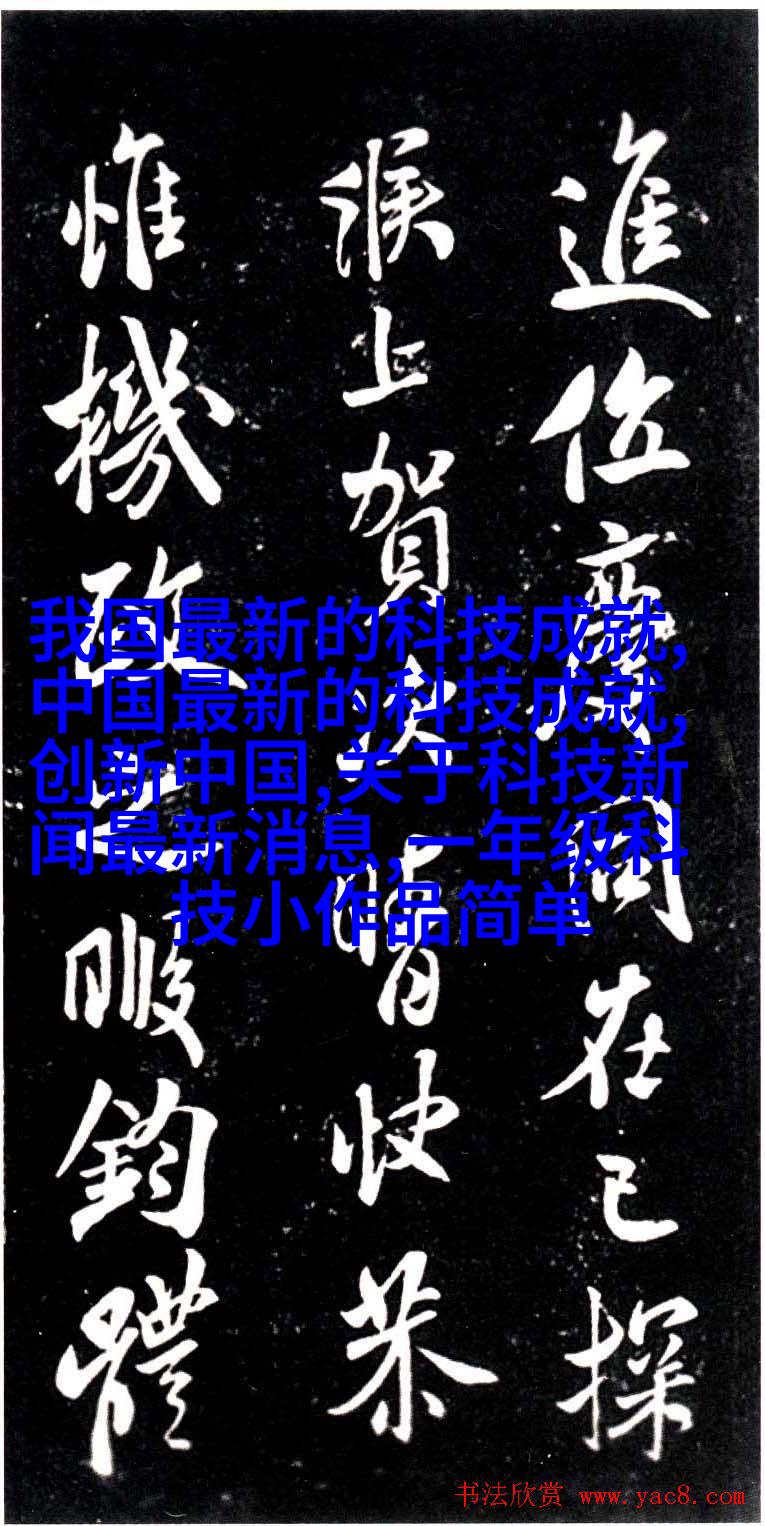 進位同在已探
候上賀次晴快恭
惟機政之暇鈞體
我国最新的科技成就,
中国最新的科技成就,
创新中国,关于科技新
闻最新消息,一年级科
技小作品简单
书法欣赏 www.yac8.com